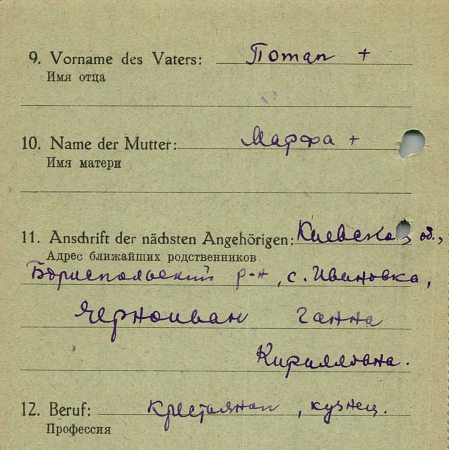 9. Vorname des Vaters: Потап +
Имя отца
10. Name der Mutter: Марфа +
Имя матери
11. Anschrift der nächsten Angehörigen: Киевская об.,
Адрес ближайших родственников
Бориспольский р-н, с. Ивановка,
Черноиван Ганна
Кирилловна.
12. Beruf: крестьянин, кузнец.
Профессия